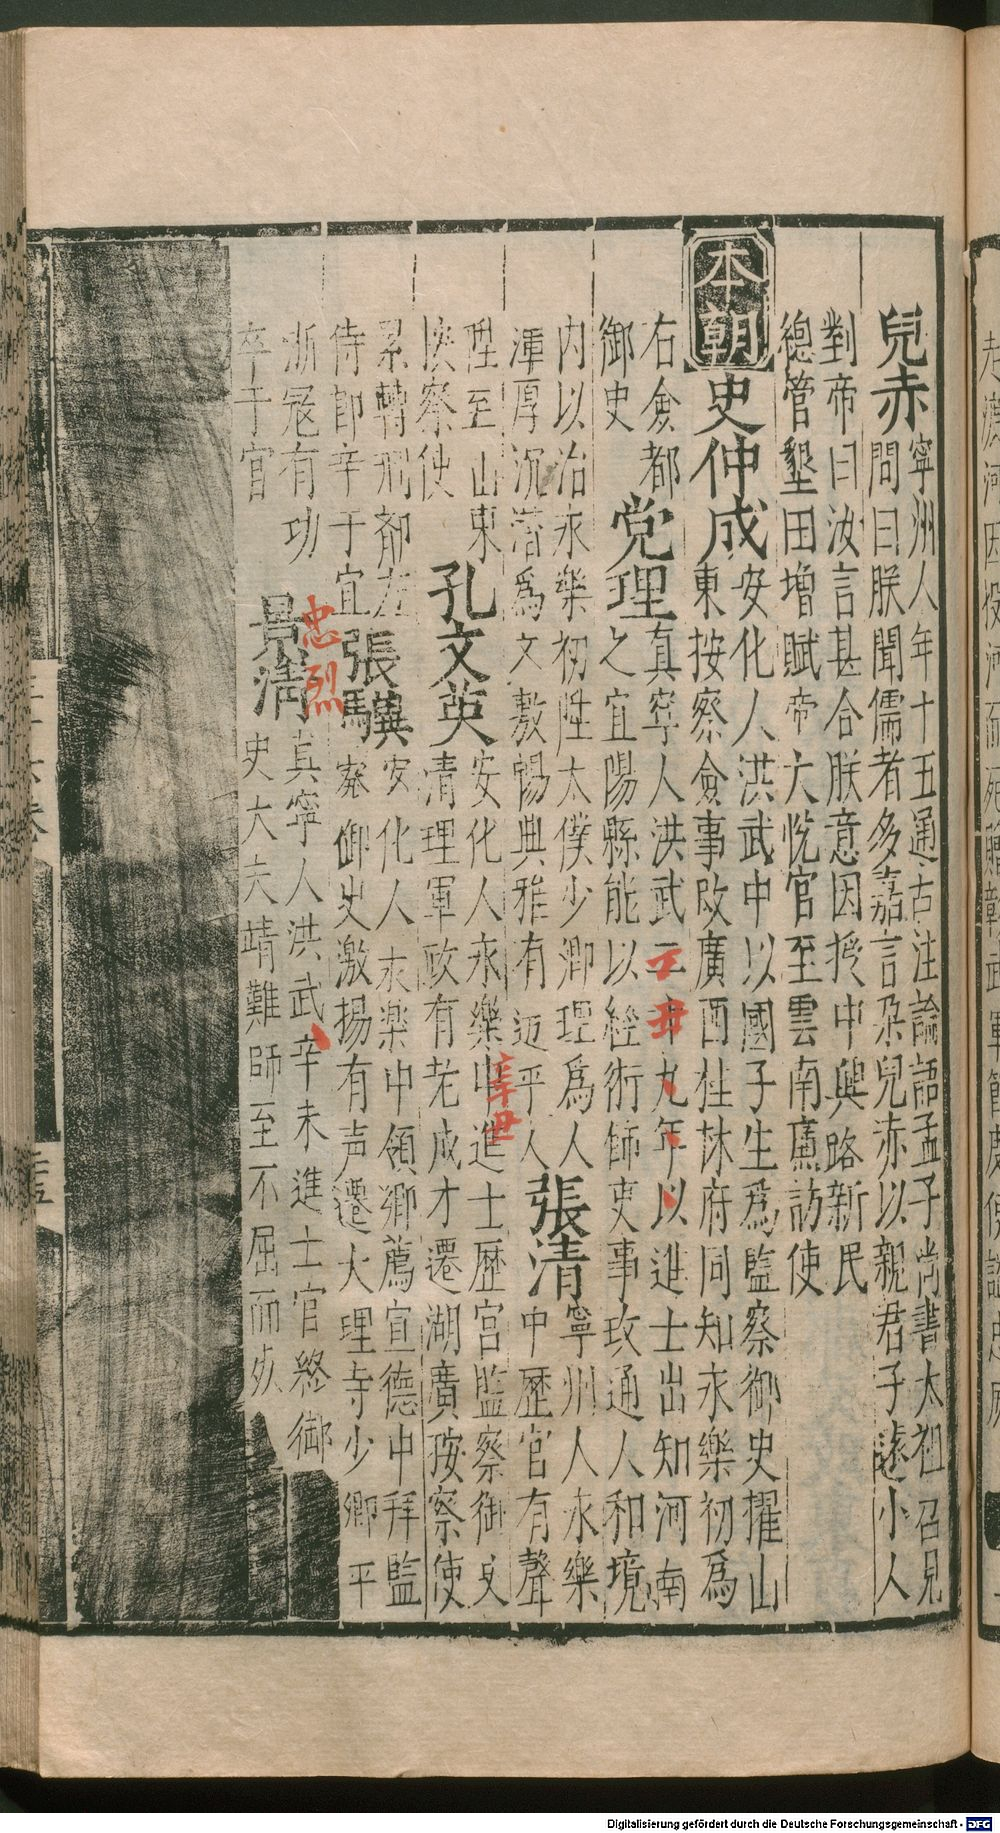 兒赤寧州人年十五通古注論語孟子尚書太祖召見
問曰朕聞儒者多嘉言朶兒赤以親君子遠小人
對帝曰汝言甚合朕意因授中興路新民
總管墾田增賦帝大恱官至雲南廉訪使
本朝史仲成安化人洪武中以國子生爲監察御史擢山
東按察僉事改廣西桂林府同知永樂初爲
右僉都
御史
党理真寧人洪武二十九年以進士出知河南
之宜陽縣能以經術飾吏事政通人和境
内以治永樂初陞太僕少卿理爲人
渾厚沉潛爲文敷暢典雅有迈乎人
張清寧州人永樂
中歷官有聲
陞至山東
按察使
孔文英安化人永樂中進士歷官監察御史
清理軍政有老成才遷湖廣按察使
累轉刑部左
侍郎卒于官
張驥安化人永楽中領鄉薦宣德中拜監
察御史激揚有声遷大理寺少卿平
浙冦有功
卒于官
景清真寧人洪武辛未進士官終御
史大夫靖難師至不屈而死
丁丑
辛丑
忠烈
二十五
Digitalisierung gefördert durch die Deutsche Forschungsgemeinschaft - DFG